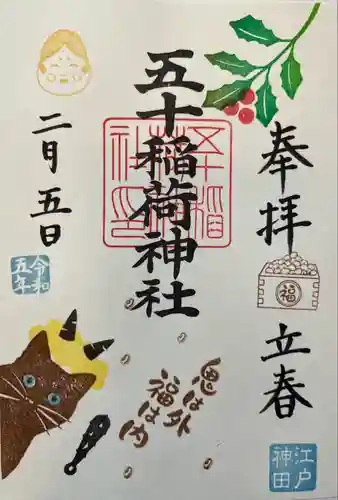 奉拝
福
立春
江戸
神田
五十稲荷神社
五十稲荷神社印
鬼は外
福は内
二月五日
令和
五年